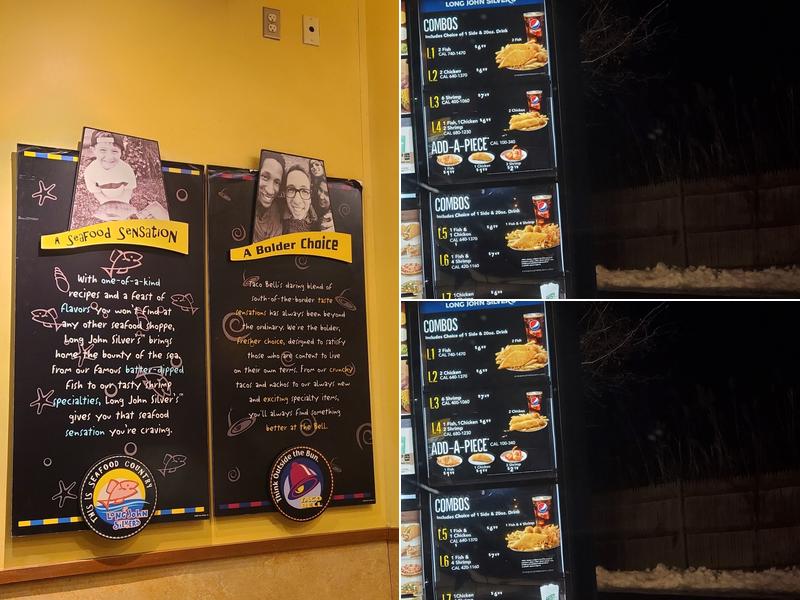 A Seafood Sensation
With one-of-a-kind
recipes and a feast of
flavors you won't find at
any other seafood shoppe,
Long John Silver's brings
home the bounty of the sea.
From our famous batter-dipped
fish to our tasty shrimp
specialties, Long John Silver's
gives you that seafood
sensation you're craving.
THIS IS SEAFOOD COUNTRY
LONG JOHN
SILVER'S
A Bolder Choice
Taco Bell's daring blend of
south-of-the-border taste
sensations has always been beyond
the ordinary. We're the bolder,
fresher choice, designed to satisfy
those who are content to live
on their own terms. From our crunchy
tacos and nachos to our always new
and exciting specialty items,
you'll always find something
better at the Bell.
Think Outside the Bun.
TACO
BELL
LONG JOHN SILVER'S
COMBOS
Includes Choice of 1 Side & 20oz. Drink
L1 2 Fish
CAL 740-1470
2 Fish
L2 2 Chicken
CAL 640-1270
L3 6 Shrimp
CAL 400-1060
2 Chicken
L4 1 Fish, 1 Chicken
2 Shrimp
CAL 680-1230
ADD-A-PIECE CAL 100-340
1 Fish
1 Chicken
3 Shrimp
COMBOS
Includes Choice of 1 Side & 20oz. Drink
L5 1 Fish &
1 Chicken
CAL 640-1370
1 Fish & 4 Shrimp
L6 1 Fish
4 Shrimp
CAL 420-1160
L7 1 Chicken
LONG JOHN SILVER'S
COMBOS
Includes Choice of 1 Side & 20oz. Drink
L1 2 Fish
CAL 740-1470
2 Fish
L2 2 Chicken
CAL 640-1270
L3 6 Shrimp
CAL 400-1060
2 Chicken
L4 1 Fish, 1 Chicken
2 Shrimp
CAL 680-1230
ADD-A-PIECE CAL 100-340
1 Fish
1 Chicken
3 Shrimp
COMBOS
Includes Choice of 1 Side & 20oz. Drink
L5 1 Fish &
1 Chicken
CAL 640-1370
1 Fish & 4 Shrimp
L6 1 Fish &
4 Shrimp
CAL 420-1160
L7 1 Chicken